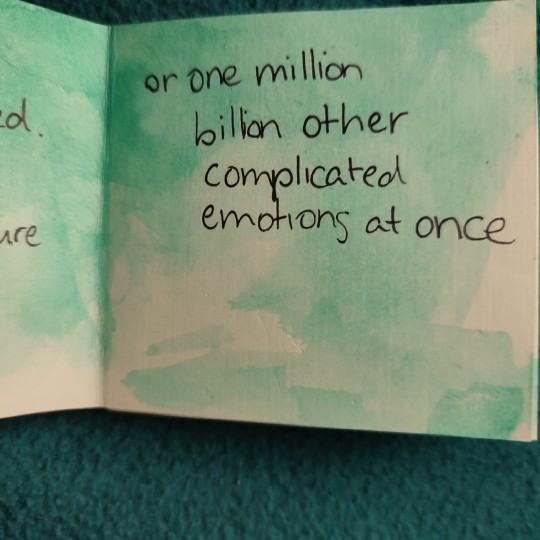 ed.
ure
or one million
billion other
complicated
emotions at once